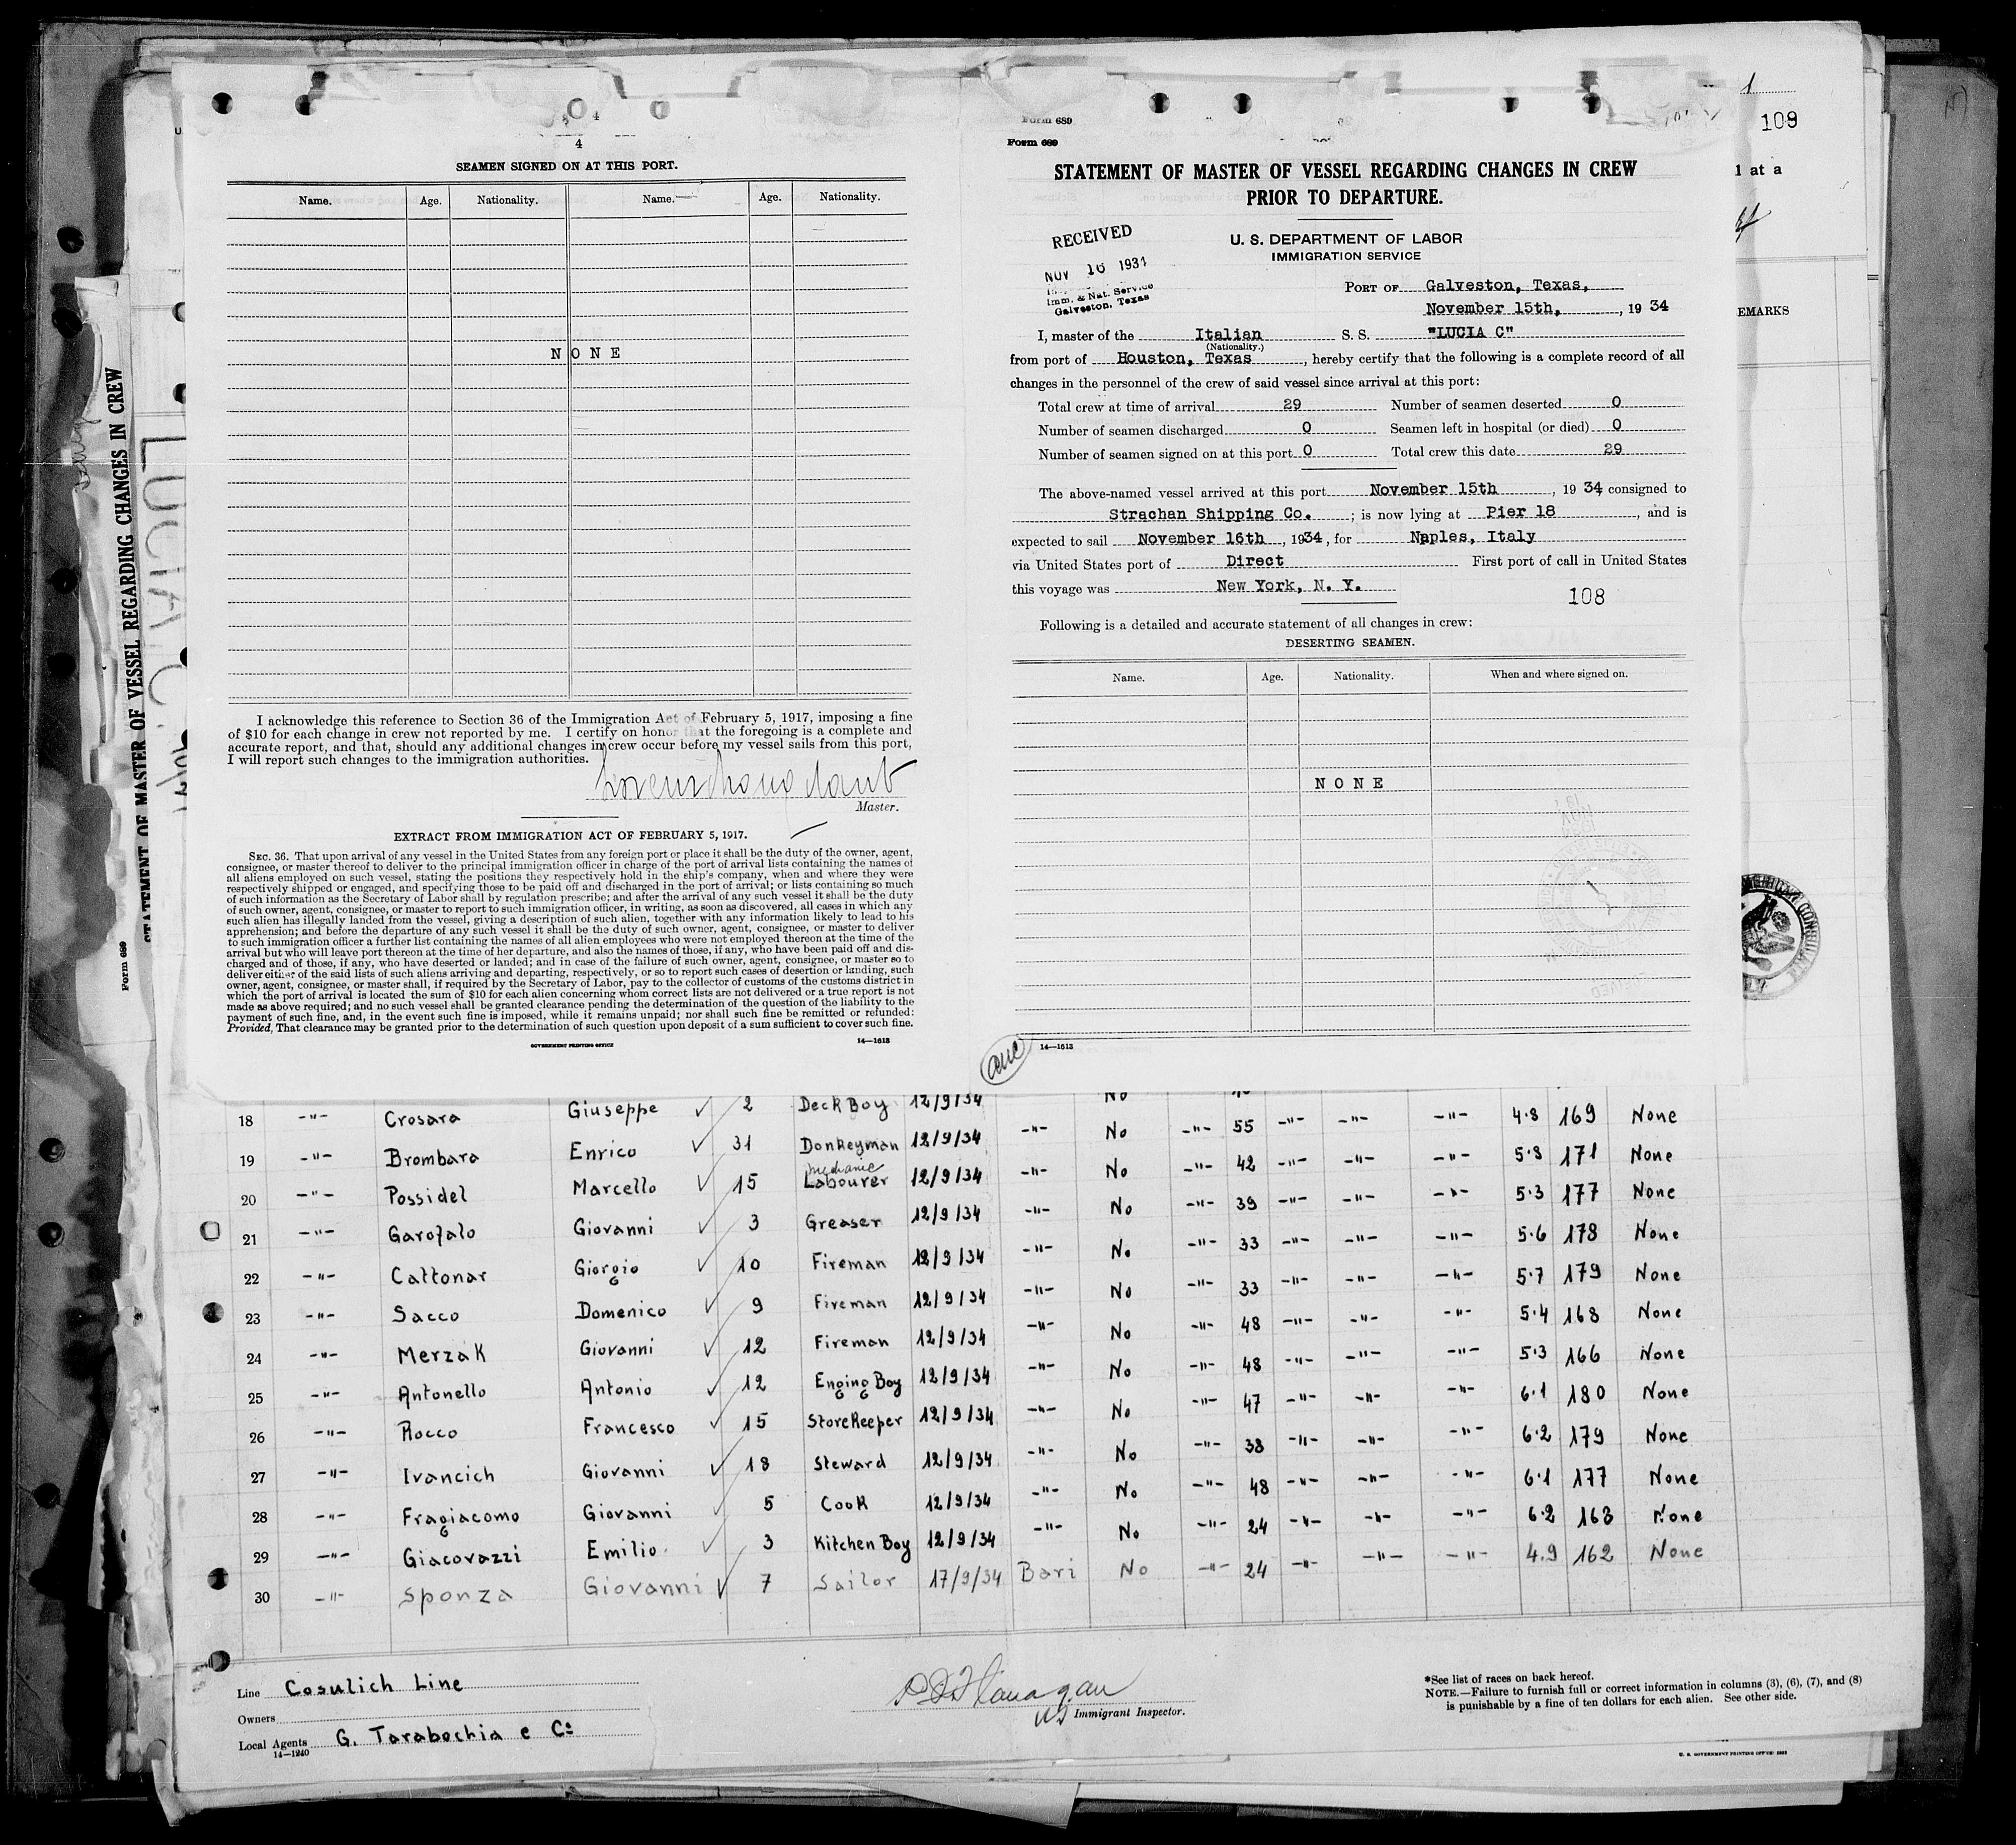 4
SEAMEN SIGNED ON AT THIS PORT.
Name. Age. Nationality. Name. Age. Nationality.
NONE
I acknowledge this reference to Section 36 of the Immigration Act of February 5, 1917, imposing a fine
of $10 for each change in crew not reported by me. I certify on honor that the foregoing is a complete and
accurate report, and that, should any additional changes in crew occur before my vessel sails from this port,
I will report such changes to the immigration authorities.
Master.
EXTRACT FROM IMMIGRATION ACT OF FEBRUARY 5, 1917.
SEC. 36. That upon arrival of any vessel in the United States from any foreign port or place it shall be the duty of the owner, agent,
consignee, or master thereof to deliver to the principal immigration officer in charge of the port of arrival lists containing the names of
all aliens employed on such vessel, stating the positions they respectively hold in the ship's company, when and where they were
respectively shipped or engaged, and specifying those to be paid off and discharged in the port of arrival; or lists containing so much
of such information as the Secretary of Labor shall by regulation prescribe; and after the arrival of any such vessel it shall be the duty
of such owner, agent, consignee, or master to report to such immigration officer, in writing, as soon as discovered, all cases in which any
such alien has illegally landed from the vessel, giving a description of such alien, together with any information likely to lead to his
apprehension; and before the departure of any such vessel it shall be the duty of such owner, agent, consignee, or master to deliver
to such immigration officer a further list containing the names of all alien employees who were not employed thereon at the time of the
arrival but who will leave port thereon at the time of her departure, and also the names of those, if any, who have been paid off and dis-
charged and of those, if any, who have deserted or landed; and in case of the failure of such owner, agent, consignee, or master so to
deliver either of the said lists of such aliens arriving and departing, respectively, or so to report such cases of desertion or landing, such
owner, agent, consignee, or master shall, if required by the Secretary of Labor, pay to the collector of customs of the customs district in
which the port of arrival is located the sum of $10 for each alien concerning whom correct lists are not delivered or a true report is not
made as above required; and no such vessel shall be granted clearance pending the determination of the question of the liability to the
payment of such fine, and, in the event such fine is imposed, while it remains unpaid; nor shall such fine be remitted or refunded:
Provided, That clearance may be granted prior to the determination of such question upon deposit of a sum sufficient to cover such fine.
GOVERNMENT PRINTING OFFICE 14—1613
Form 689
Form 689
STATEMENT OF MASTER OF VESSEL REGARDING CHANGES IN CREW
PRIOR TO DEPARTURE.
U. S. DEPARTMENT OF LABOR
IMMIGRATION SERVICE
RECEIVED
NOV 16 1934
Imm. & Nat. Service
Galveston, Texas
PORT OF Galveston, Texas,
November 15th, , 19 34
I, master of the Italian S. S. "LUCIA C"
(Nationality.)
from port of Houston, Texas, hereby certify that the following is a complete record of all
changes in the personnel of the crew of said vessel since arrival at this port:
Total crew at time of arrival 29 Number of seamen deserted 0
Number of seamen discharged 0 Seamen left in hospital (or died) 0
Number of seamen signed on at this port 0 Total crew this date 29
The above-named vessel arrived at this port November 15th, 19 34 consigned to
Strachan Shipping Co. ; is now lying at Pier 18, and is
expected to sail November 16th, 1934, for Naples, Italy
via United States port of Direct First port of call in United States
this voyage was New York, N. Y.
108
Following is a detailed and accurate statement of all changes in crew:
DESERTING SEAMEN.
Name. Age. Nationality. When and where signed on.
NONE
14—1613
1
108
1 at a
EMARKS
STATEMENT OF MASTER OF VESSEL REGARDING CHANGES IN CREW
Form 689
LUCIA C.
18 -"- Crosara Giuseppe 2 Deck Boy 12/9/34 -"- No -"- 55 -"- -"- -"- 4.8 169 None
19 -"- Brombara Enrico 31 Donkeyman 12/9/34 -"- No -"- 42 -"- -"- -"- 5.8 171 None
mechanic
20 -"- Possidel Marcello 15 Labourer 12/9/34 -"- No -"- 39 -"- -"- -"- 5.3 177 None
21 -"- Garofalo Giovanni 3 Greaser 12/9/34 -"- No -"- 33 -"- -"- -"- 5.6 178 None
22 -"- Cattonar Giorgio 10 Fireman 12/9/34 -"- No -"- 33 -"- -"- -"- 5.7 179 None
23 -"- Sacco Domenico 9 Fireman 12/9/34 -"- No -"- 48 -"- -"- -"- 5.4 168 None
24 -"- Merzak Giovanni 12 Fireman 12/9/34 -"- No -"- 48 -"- -"- -"- 5.3 166 None
25 -"- Antonello Antonio 12 Enging Boy 12/9/34 -"- No -"- 47 -"- -"- -"- 6.1 180 None
26 -"- Rocco Francesco 15 Storekeeper 12/9/34 -"- No -"- 38 -"- -"- -"- 6.2 179 None
27 -"- Ivancich Giovanni 18 Steward 12/9/34 -"- No -"- 48 -"- -"- -"- 6.1 177 None
28 -"- Fragiacomo Giovanni 5 Cook 12/9/34 -"- No -"- 24 -"- -"- -"- 6.2 163 None
29 -"- Giacovazzi Emilio 3 Kitchen Boy 12/9/34 Bari No -"- 24 -"- -"- -"- 4.9 162 None
30 -"- Sponza Giovanni 7 Sailor 17/9/34
Line Cosulich Line
Owners
Local Agents G. Tarabochia e Co
14—1240
P. D. Flanagan
Immigrant Inspector.
*See list of races on back hereof.
NOTE.—Failure to furnish full or correct information in columns (3), (6), (7), and (8)
is punishable by a fine of ten dollars for each alien. See other side.
U. S. GOVERNMENT PRINTING OFFICE